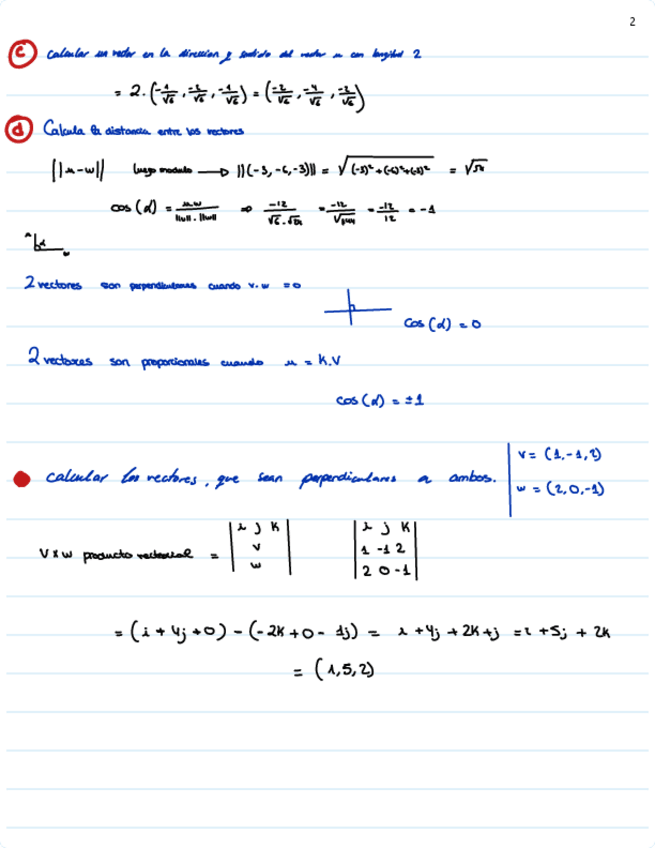 2
c Calcular un vector en la direccion y sentido del vector u con longitud 2
= 2·(-1/√6, -2/√6, -1/√6) = (-2/√6, -4/√6, -2/√6)
d Calcula la distancia entre los vectores
||u-w|| luego modulo → ||(-3,-6,-3)|| = √((-3)²+(-6)²+(-3)²) = √54
cos(α) = u·w / ||u||·||w|| ⇒ -12/√6·√24 = -12/√144 = -12/12 = -1
2 vectores son perpendiculares cuando v·w = 0
cos(α) = 0
2 vectores son proporcionales cuando u = K·V
cos(α) = ±1
v = (1,-1,2)
calcular los vectores, que sean perpendiculares a ambos.
w = (2,0,-1)
V x w producto vectorial = |i j K| |i j K|
v 1 -1 2
w 2 0 -1
= (i + 4j + 0) - (-2K + 0 - 1j) = i + 4j + 2K + j = i + 5j + 2K
= (1,5,2)